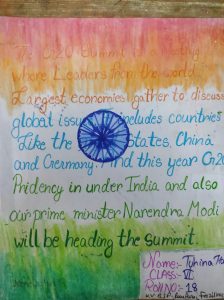 The G20 Summit is a meeting
where Leaders from the world
Largest economies gather to discuss
global issues includes countries
Like the States, China
and Germany. And this year G20
Pridency in under India and also
our prime minister Narendra Modi
will be heading the summit.
Name:- Tuhina
CLASS:- VI
ROLL NO:- 18